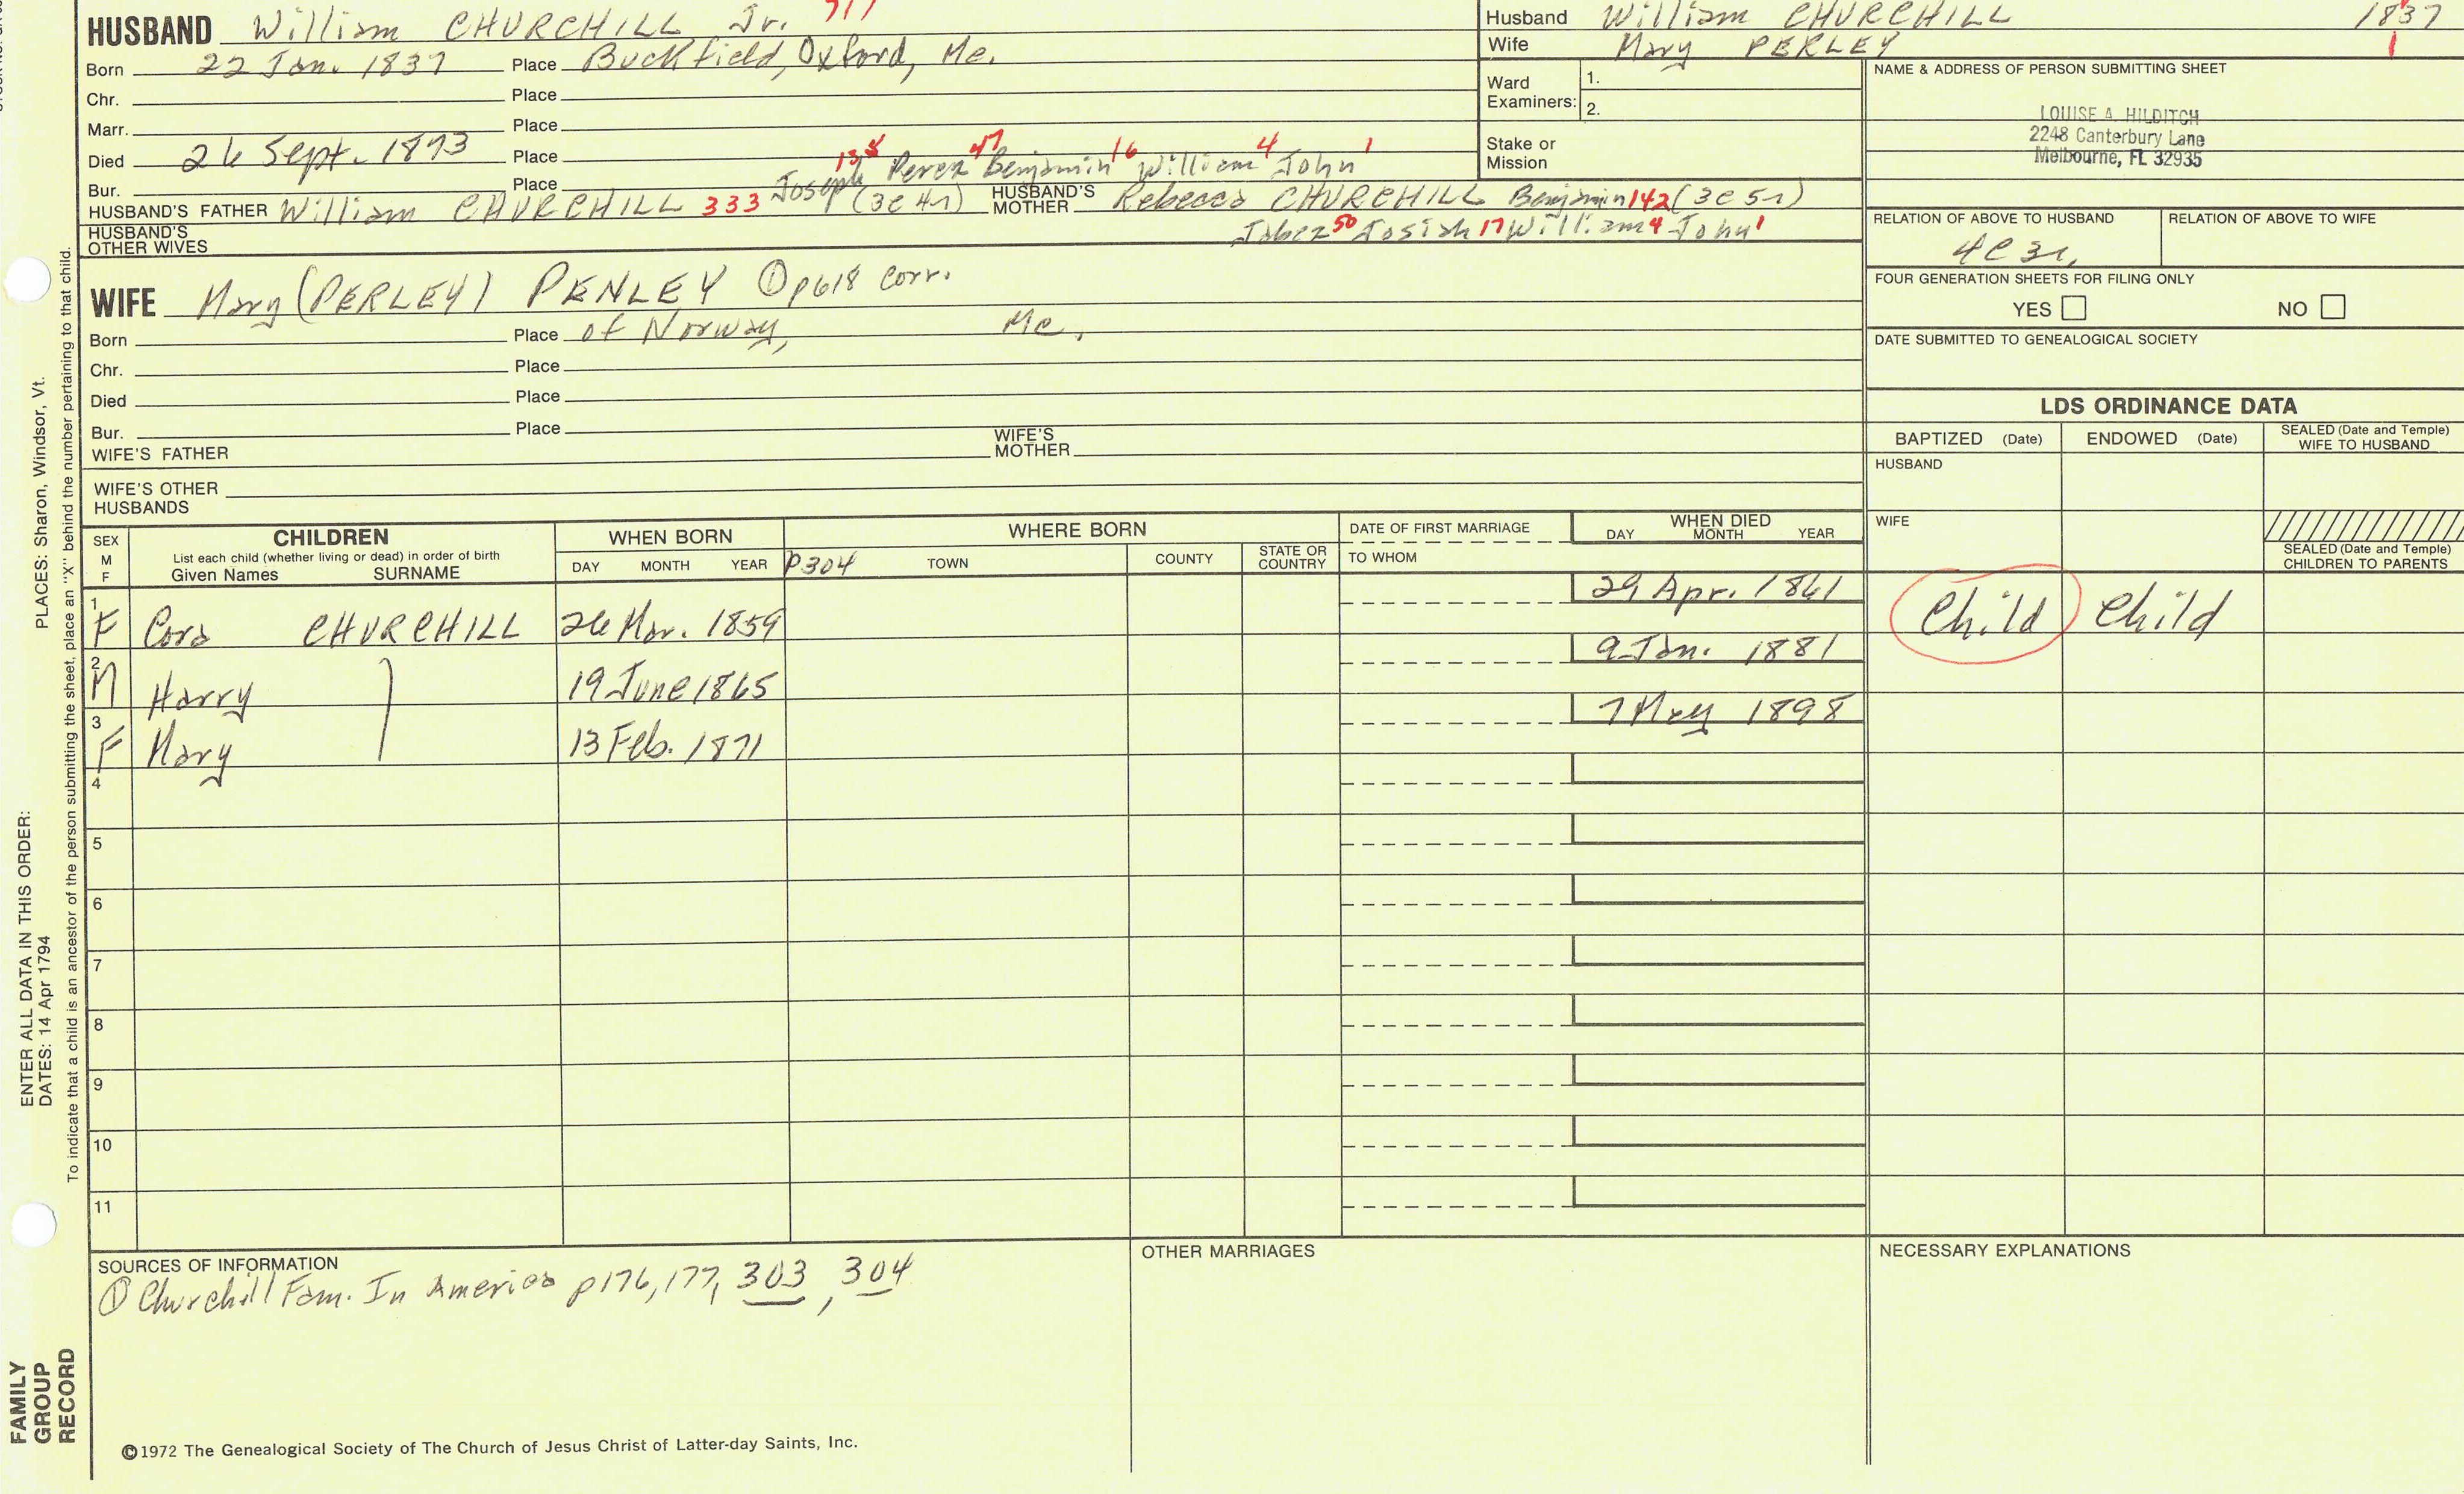 HUSBAND William CHURCHILL Jr. 711
Born 22 Jan. 1837 Place Buckfield, Oxford, Me.
Chr. Place
Marr. Place
Died 26 Sept. 1893 Place
Bur. Place Joseph 138 Perez 47 Benjamin 16 William 4 John 1
HUSBAND'S FATHER William CHURCHILL 333 (3C4r) HUSBAND'S MOTHER Rebecca CHURCHILL Benjamin 142 (3C5r)
HUSBAND'S OTHER WIVES Jabez 50 Josiah 17 William 4 John 1
Husband William CHURCHILL 1837
Wife Mary PERLEY 1
Ward Examiners: 1.
2.
Stake or Mission
NAME & ADDRESS OF PERSON SUBMITTING SHEET
LOUISE A. HILDITCH
2248 Canterbury Lane
Melbourne, FL 32935
RELATION OF ABOVE TO HUSBAND RELATION OF ABOVE TO WIFE
4C3r
FOUR GENERATION SHEETS FOR FILING ONLY
YES NO
DATE SUBMITTED TO GENEALOGICAL SOCIETY
WIFE Mary (PERLEY) PENLEY ① p618 corr.
Born Place of Norway, Me.
Chr. Place
Died Place
Bur. Place
WIFE'S FATHER WIFE'S MOTHER
WIFE'S OTHER HUSBANDS
LDS ORDINANCE DATA
BAPTIZED (Date) ENDOWED (Date) SEALED (Date and Temple) WIFE TO HUSBAND
HUSBAND
WIFE
SEALED (Date and Temple) CHILDREN TO PARENTS
SEX M F
CHILDREN
List each child (whether living or dead) in order of birth
Given Names SURNAME
WHEN BORN
DAY MONTH YEAR
WHERE BORN
P304 TOWN COUNTY STATE OR COUNTRY
DATE OF FIRST MARRIAGE
TO WHOM
WHEN DIED
DAY MONTH YEAR
1 F Cora CHURCHILL 26 Mar. 1859 29 Apr. 1861 Child Child
2 M Harry 19 June 1865 9 Jan. 1881
3 F Mary 13 Feb. 1871 7 May 1898
4
5
6
7
8
9
10
11
SOURCES OF INFORMATION
① Churchill Fam. In America p176, 177, 303, 304
OTHER MARRIAGES
NECESSARY EXPLANATIONS
©1972 The Genealogical Society of The Church of Jesus Christ of Latter-day Saints, Inc.
FAMILY GROUP RECORD
ENTER ALL DATA IN THIS ORDER:
DATES: 14 Apr 1794
PLACES: Sharon, Windsor, Vt.
To indicate that a child is an ancestor of the person submitting the sheet, place an "X" behind the number pertaining to that child.